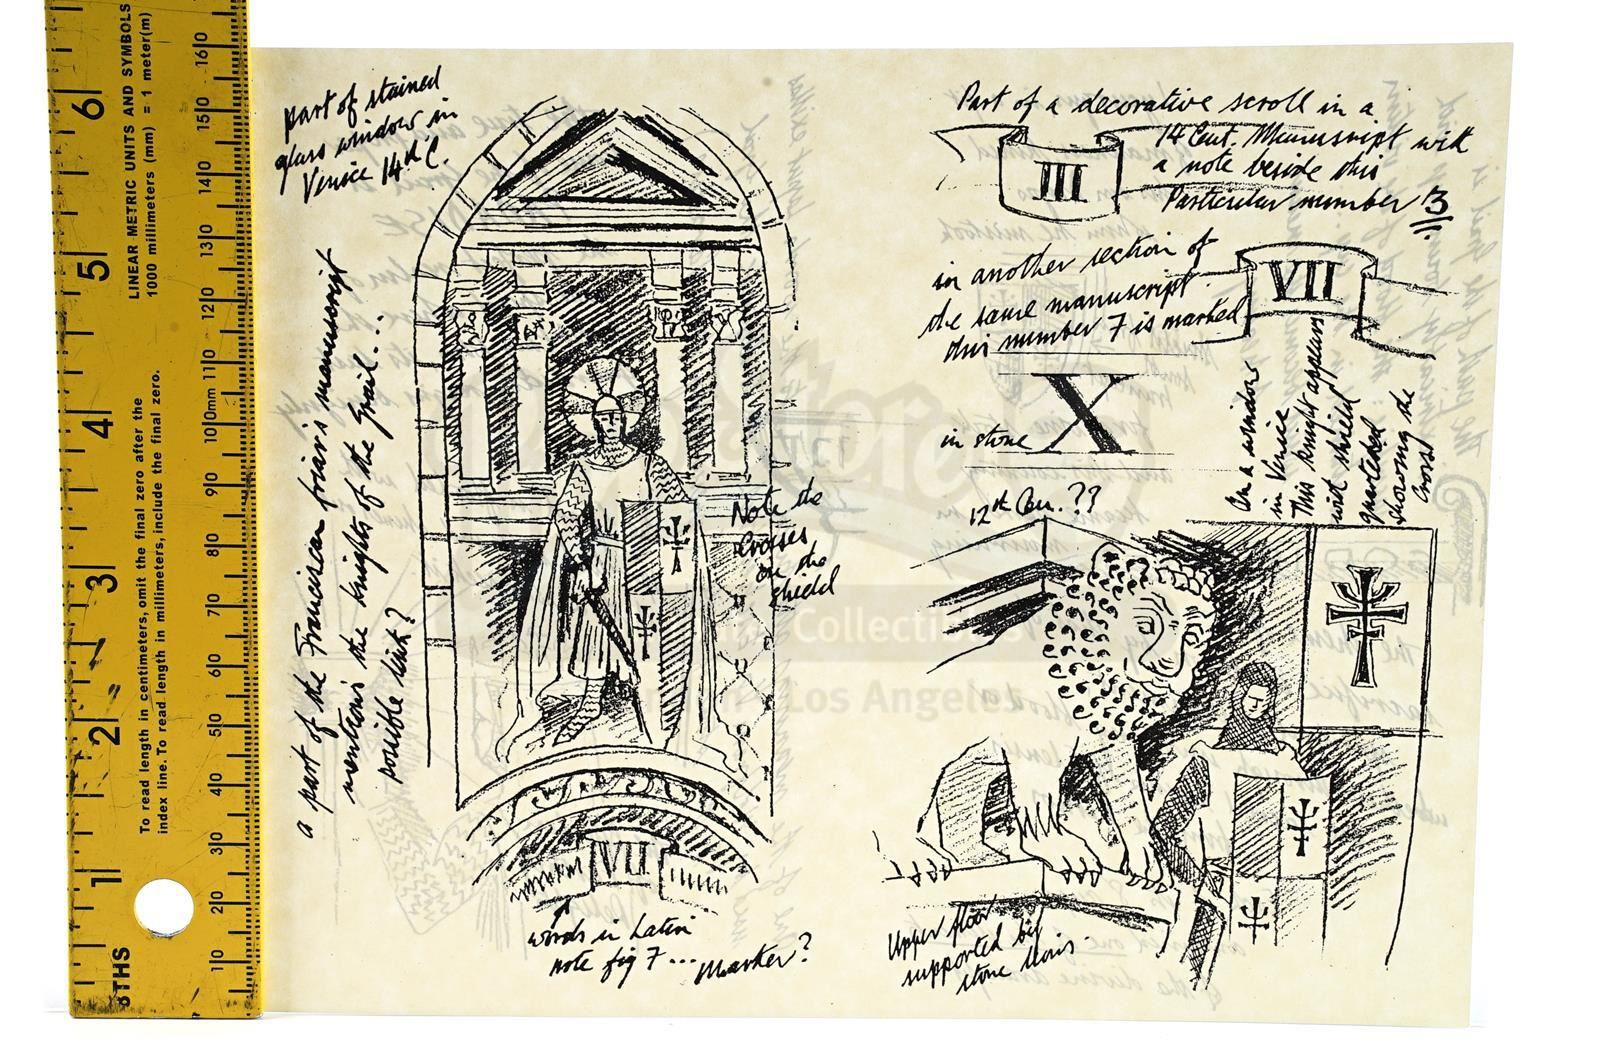 LINEAR METRIC UNITS AND SYMBOLS
1000 millimeters (mm) = 1 meter(m)
To read length in centimeters, omit the final zero after the
index line. To read length in millimeters, include the final zero.
8THS
1
2
3
4
5
6
10
20
30
40
50
60
70
80
90
100mm
110
120
130
140
150
160
part of stained
glass window in
Venice 14th C.
a part of the Franciscan friar's manuscript
mentions the knights of the Grail...
possible link?
Note the
Crosses
on the
shield
VII
words in Latin
note fig 7 ... Marker?
Part of a decorative scroll in a
14 Cent. Manuscript with
a note beside this
Particular number 3
III
in another section of
the same manuscript
this number 7 is marked
VII
in stone X
12th Cen. ??
On a window
in Venice
This knight appears
with shield
quartered
showing the
Cross
Upper floor
supported by
stone lions
Collectibles
Los Angeles